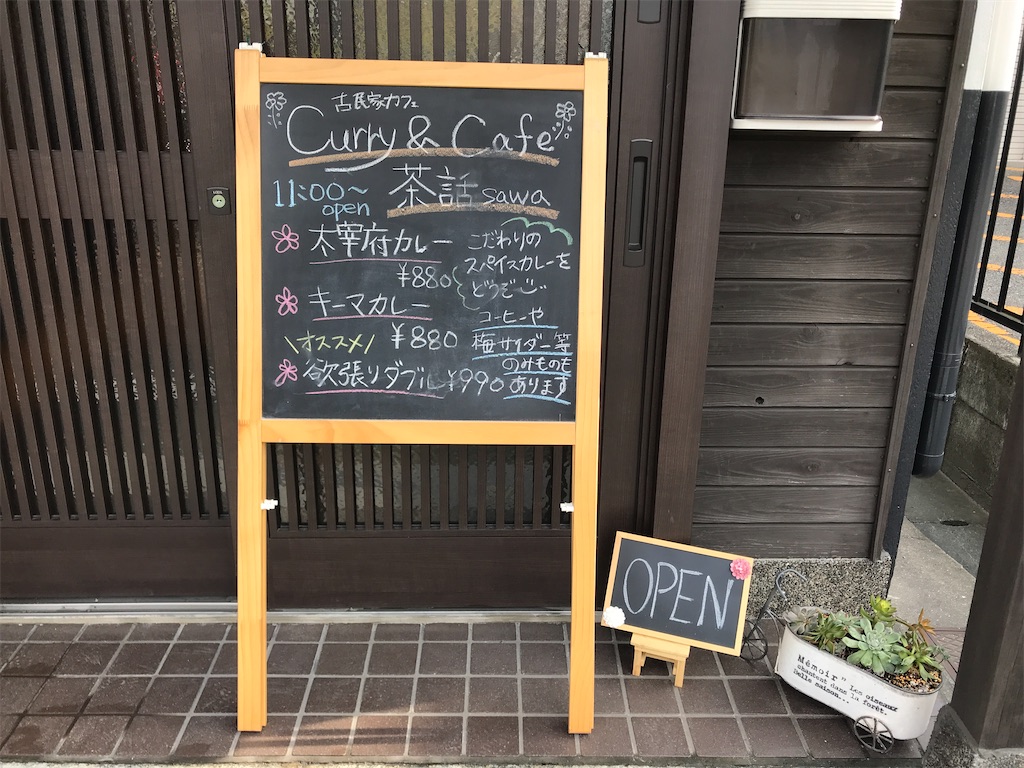 古民家カフェ
Curry & Cafe
茶話 sawa
11:00~
open
太宰府カレー
¥880
キーマカレー
\オススメ/ ¥880
欲張りダブル ¥990
こだわりの
スパイスカレーを
どうぞ
コーヒーや
梅サイダー等
のみものも
あります
OPEN
Mémoir" Les oiseaux
chantent dans la forêt.
Belle saison...